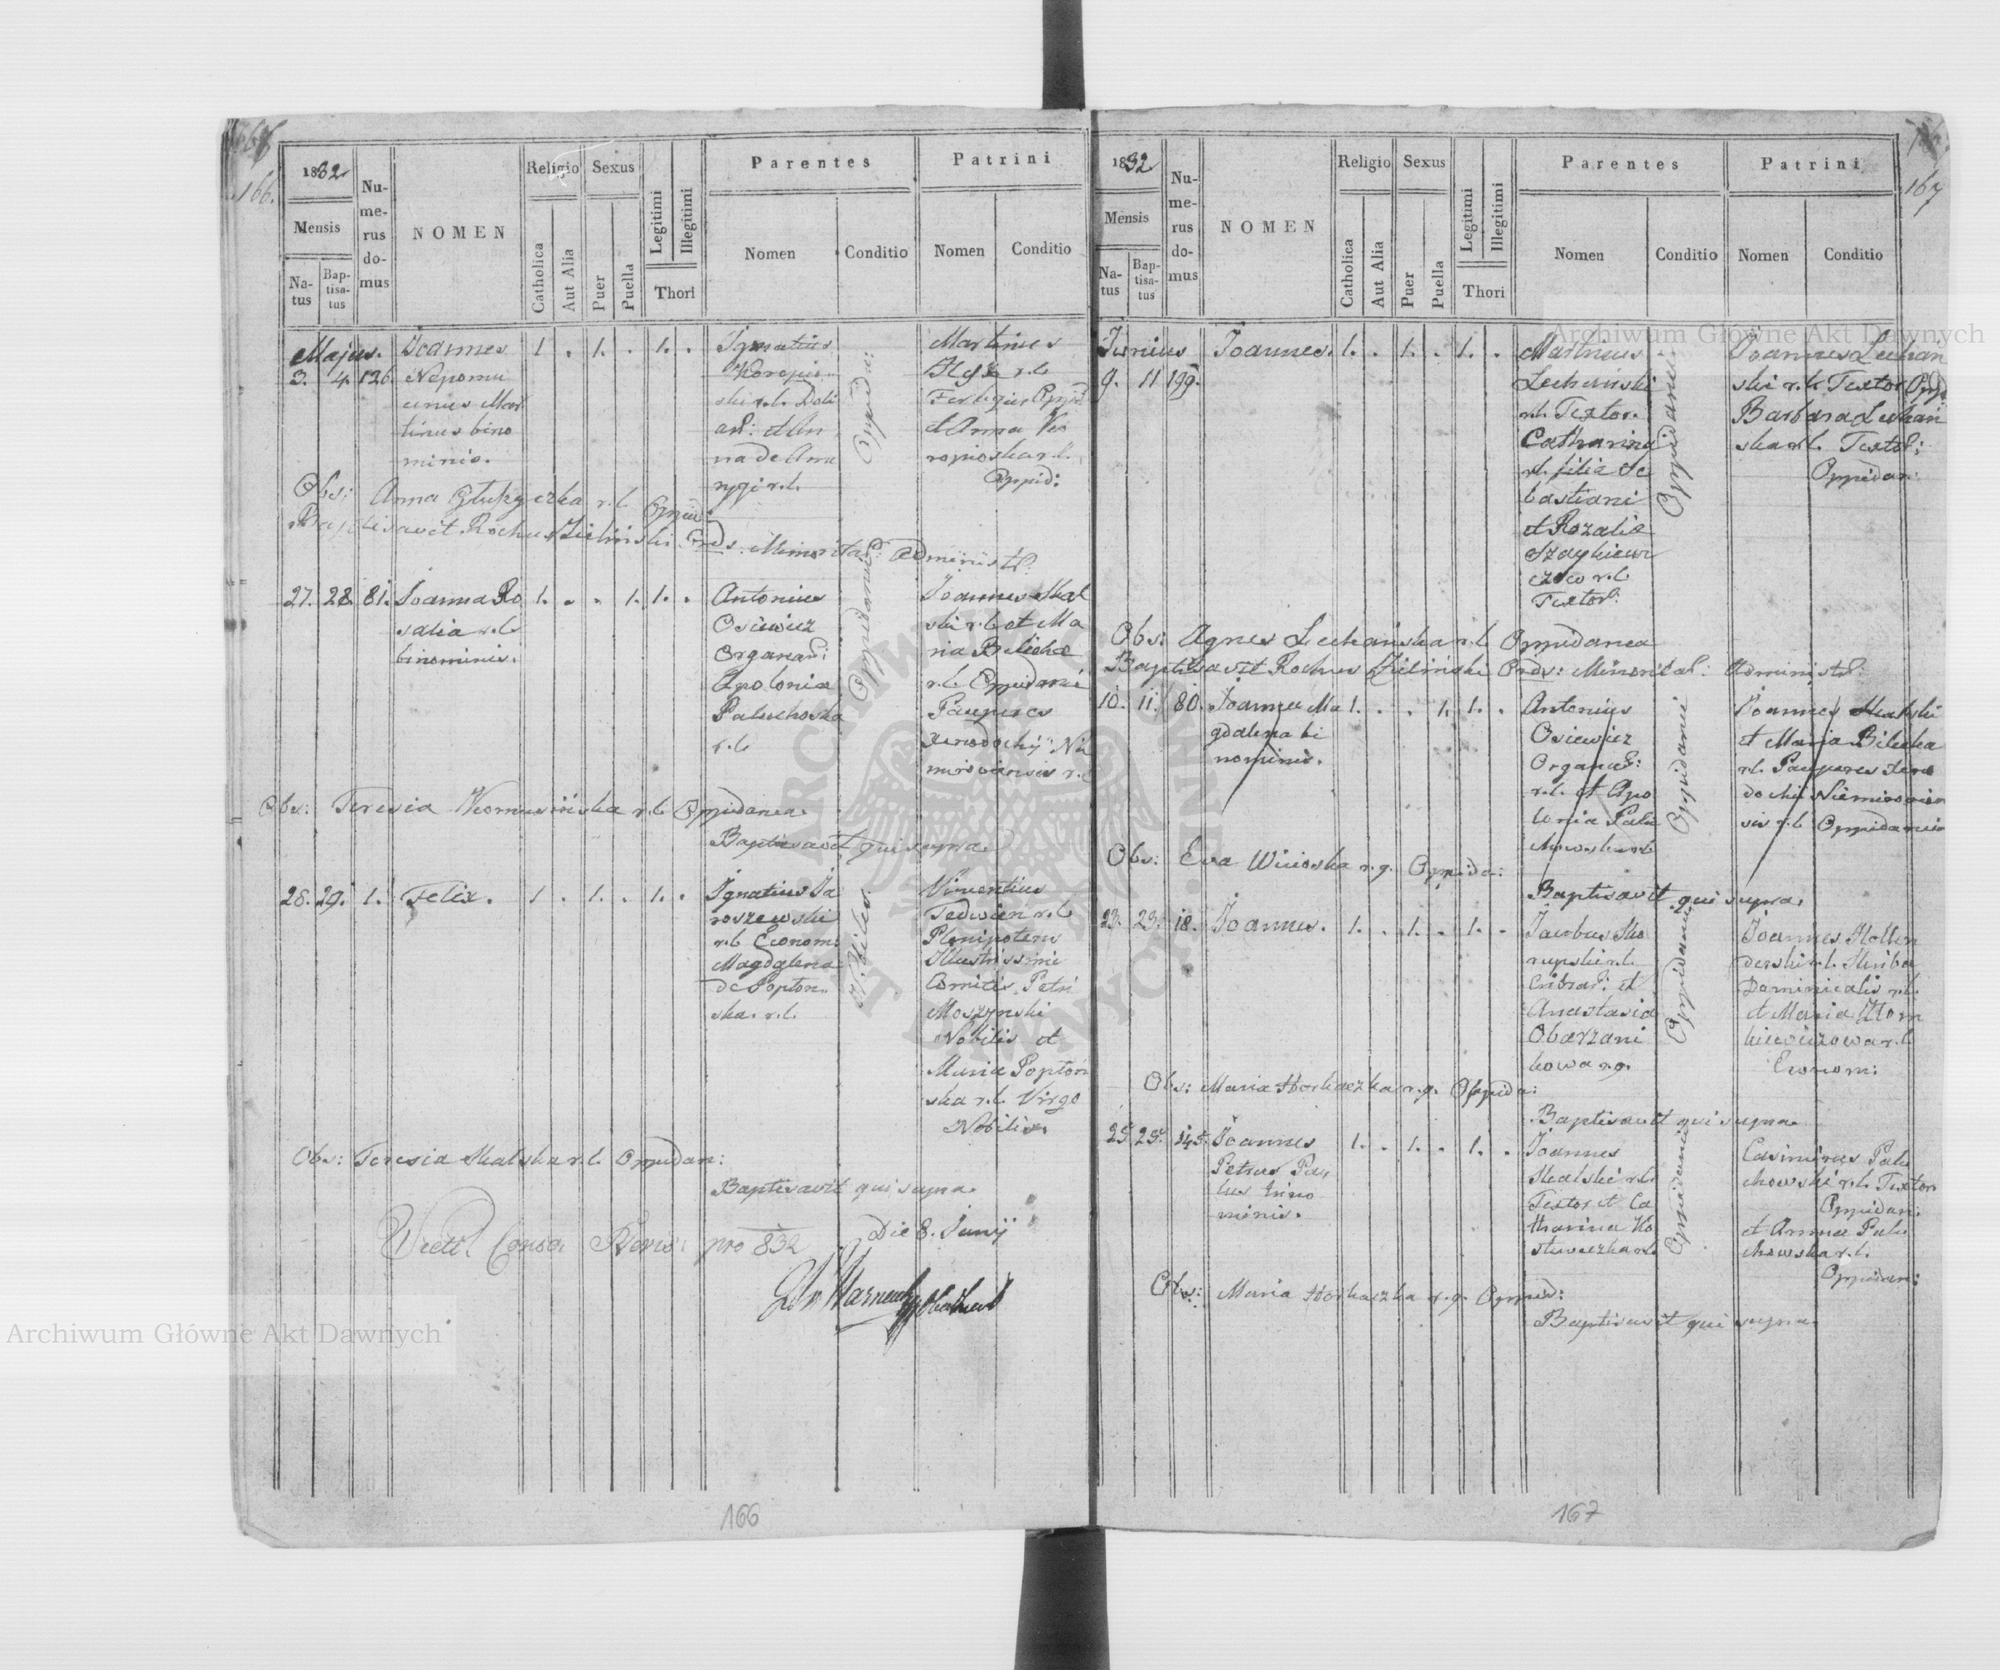 166.
1832
Mensis
Na-
tus
Bap-
tisa-
tus
Nu-
me-
rus
do-
mus
NOMEN
Religio
Catholica
Aut Alia
Sexus
Puer
Puella
Legitimi
Illegitimi
Thori
Parentes
Nomen
Conditio
Patrini
Nomen
Conditio
Majus.
3. 4. 126.
Joannes
Nepomu
cenus Mar
tinus bino
minis.
1 . 1. . 1. .
Ignatius
Koropio
ski r.l. Doli
ar: et An
na de
r.l.
Oppida:
Martinus
r.l.
Oppid
et Anna Ko
roposka r.l.
Oppid:
Obs: Anna r.l. Oppid:
Baptisavit Rochus Zieliński Ords. Minorita: Administ:
27. 28. 81.
Joanna Ro
salia r.l.
binominis.
1. . . 1. 1. .
Antonius
Osiewicz
Organar:
Apolonia
Paluchoska
r.l.
Oppidanei
Joannes Skal
ski r.l. et Ma
ria Bilecka
r.l. Oppidanei
Pauperes
Xenodochij Nie
miroviensis r.l.
Obs: Teresia Komusińska r.l. Oppidanea.
Baptisavit qui supra.
28. 29. 1.
Felix.
1 . 1. . 1. .
Ignatius Ja
roszewski
r.l. Econom:
Magdalena
de Popton
ska. r.l.
Nobiles
Vincentius
r.l.
Plenipotens
Illustrissimi
Comitis Petri
Moszynski
Nobilis et
Maria Poptoń
ska r.l. Virgo
Nobilis.
Obs: Teresia Skalska r.l. Oppidan:
Baptisavit qui supra.
pro 832 Die 8. Junij
166
167
1832
Mensis
Na-
tus
Bap-
tisa-
tus
Nu-
me-
rus
do-
mus
NOMEN
Religio
Catholica
Aut Alia
Sexus
Puer
Puella
Legitimi
Illegitimi
Thori
Parentes
Nomen
Conditio
Patrini
Nomen
Conditio
Junius
9. 11 199.
Joannes.
1. . 1. . 1. .
Martinus
Lechański
r.l. Textor.
Catharina
r.l. filia Se
bastiani
et Rozalia
r.l.
Textor.
Oppidanei
Joannes Lechań
ski r.l. Textor Opp
Barbara Lechań
ska r.l. Textor:
Oppidan
Obs: Agnes Lechańska r.l. Oppidanea
Baptisavit Rochus Zieliński Ords: Minorita: Administ:
10. 11. 80.
Joanna Ma
gdalena bi
nominis.
1. . . 1. 1. .
Antonius
Osiewicz
Organar:
r.l. et Apo
lonia Palu
chowska r.l.
Oppidanei
Joannes Skalski
et Maria Bilecka
r.l. Pauperes Xeno
dochii Niemirovien
sis r.l. Oppidanei
Obs: Eva Wicioska r.g. Oppida:
Baptisavit qui supra.
23. 23. 18.
Joannes.
1. . 1. . 1. .
Jacobus Sko
rupski r.l.
Cribrar: et
Anastasia
Obarzani
kowa r.g.
Oppidanei
Joannes Hollen
derski r.l. Skriba
Dominicalis r.l.
et Maria
r.l.
Econom:
Obs: Maria Horkaczka r.g. Oppida:
Baptisavit qui supra
25. 25. 145.
Joannes
Petrus Pau
lus trino
minis.
1. . 1. . 1. .
Joannes
Skalski r.l.
Textor et Ca
tharina Ko
r.l.
Oppidanei
Casimirus Palu
chowski r.l. Textor
Oppidan:
et Anna Palu
chowska r.l.
Oppidan:
Obs: Maria Horkaczka r.g. Oppid:
Baptisavit qui supra
167
Archiwum Główne Akt Dawnych
Archiwum Główne Akt Dawnych